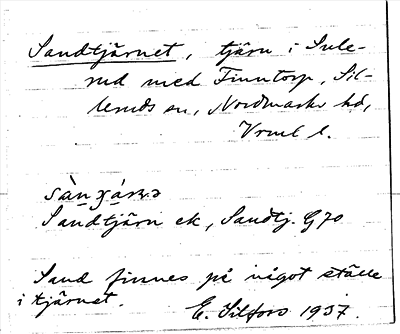 Sandtjärnet, tjärn i Sule-
rud med Finntorp, Sil-
leruds sn, Nordmarks hd,
Vrml l.
Sandtjärn ek, Sandtj. G70
Sand finnes på något ställe
i tjärnet.
E. Silfors 1937.